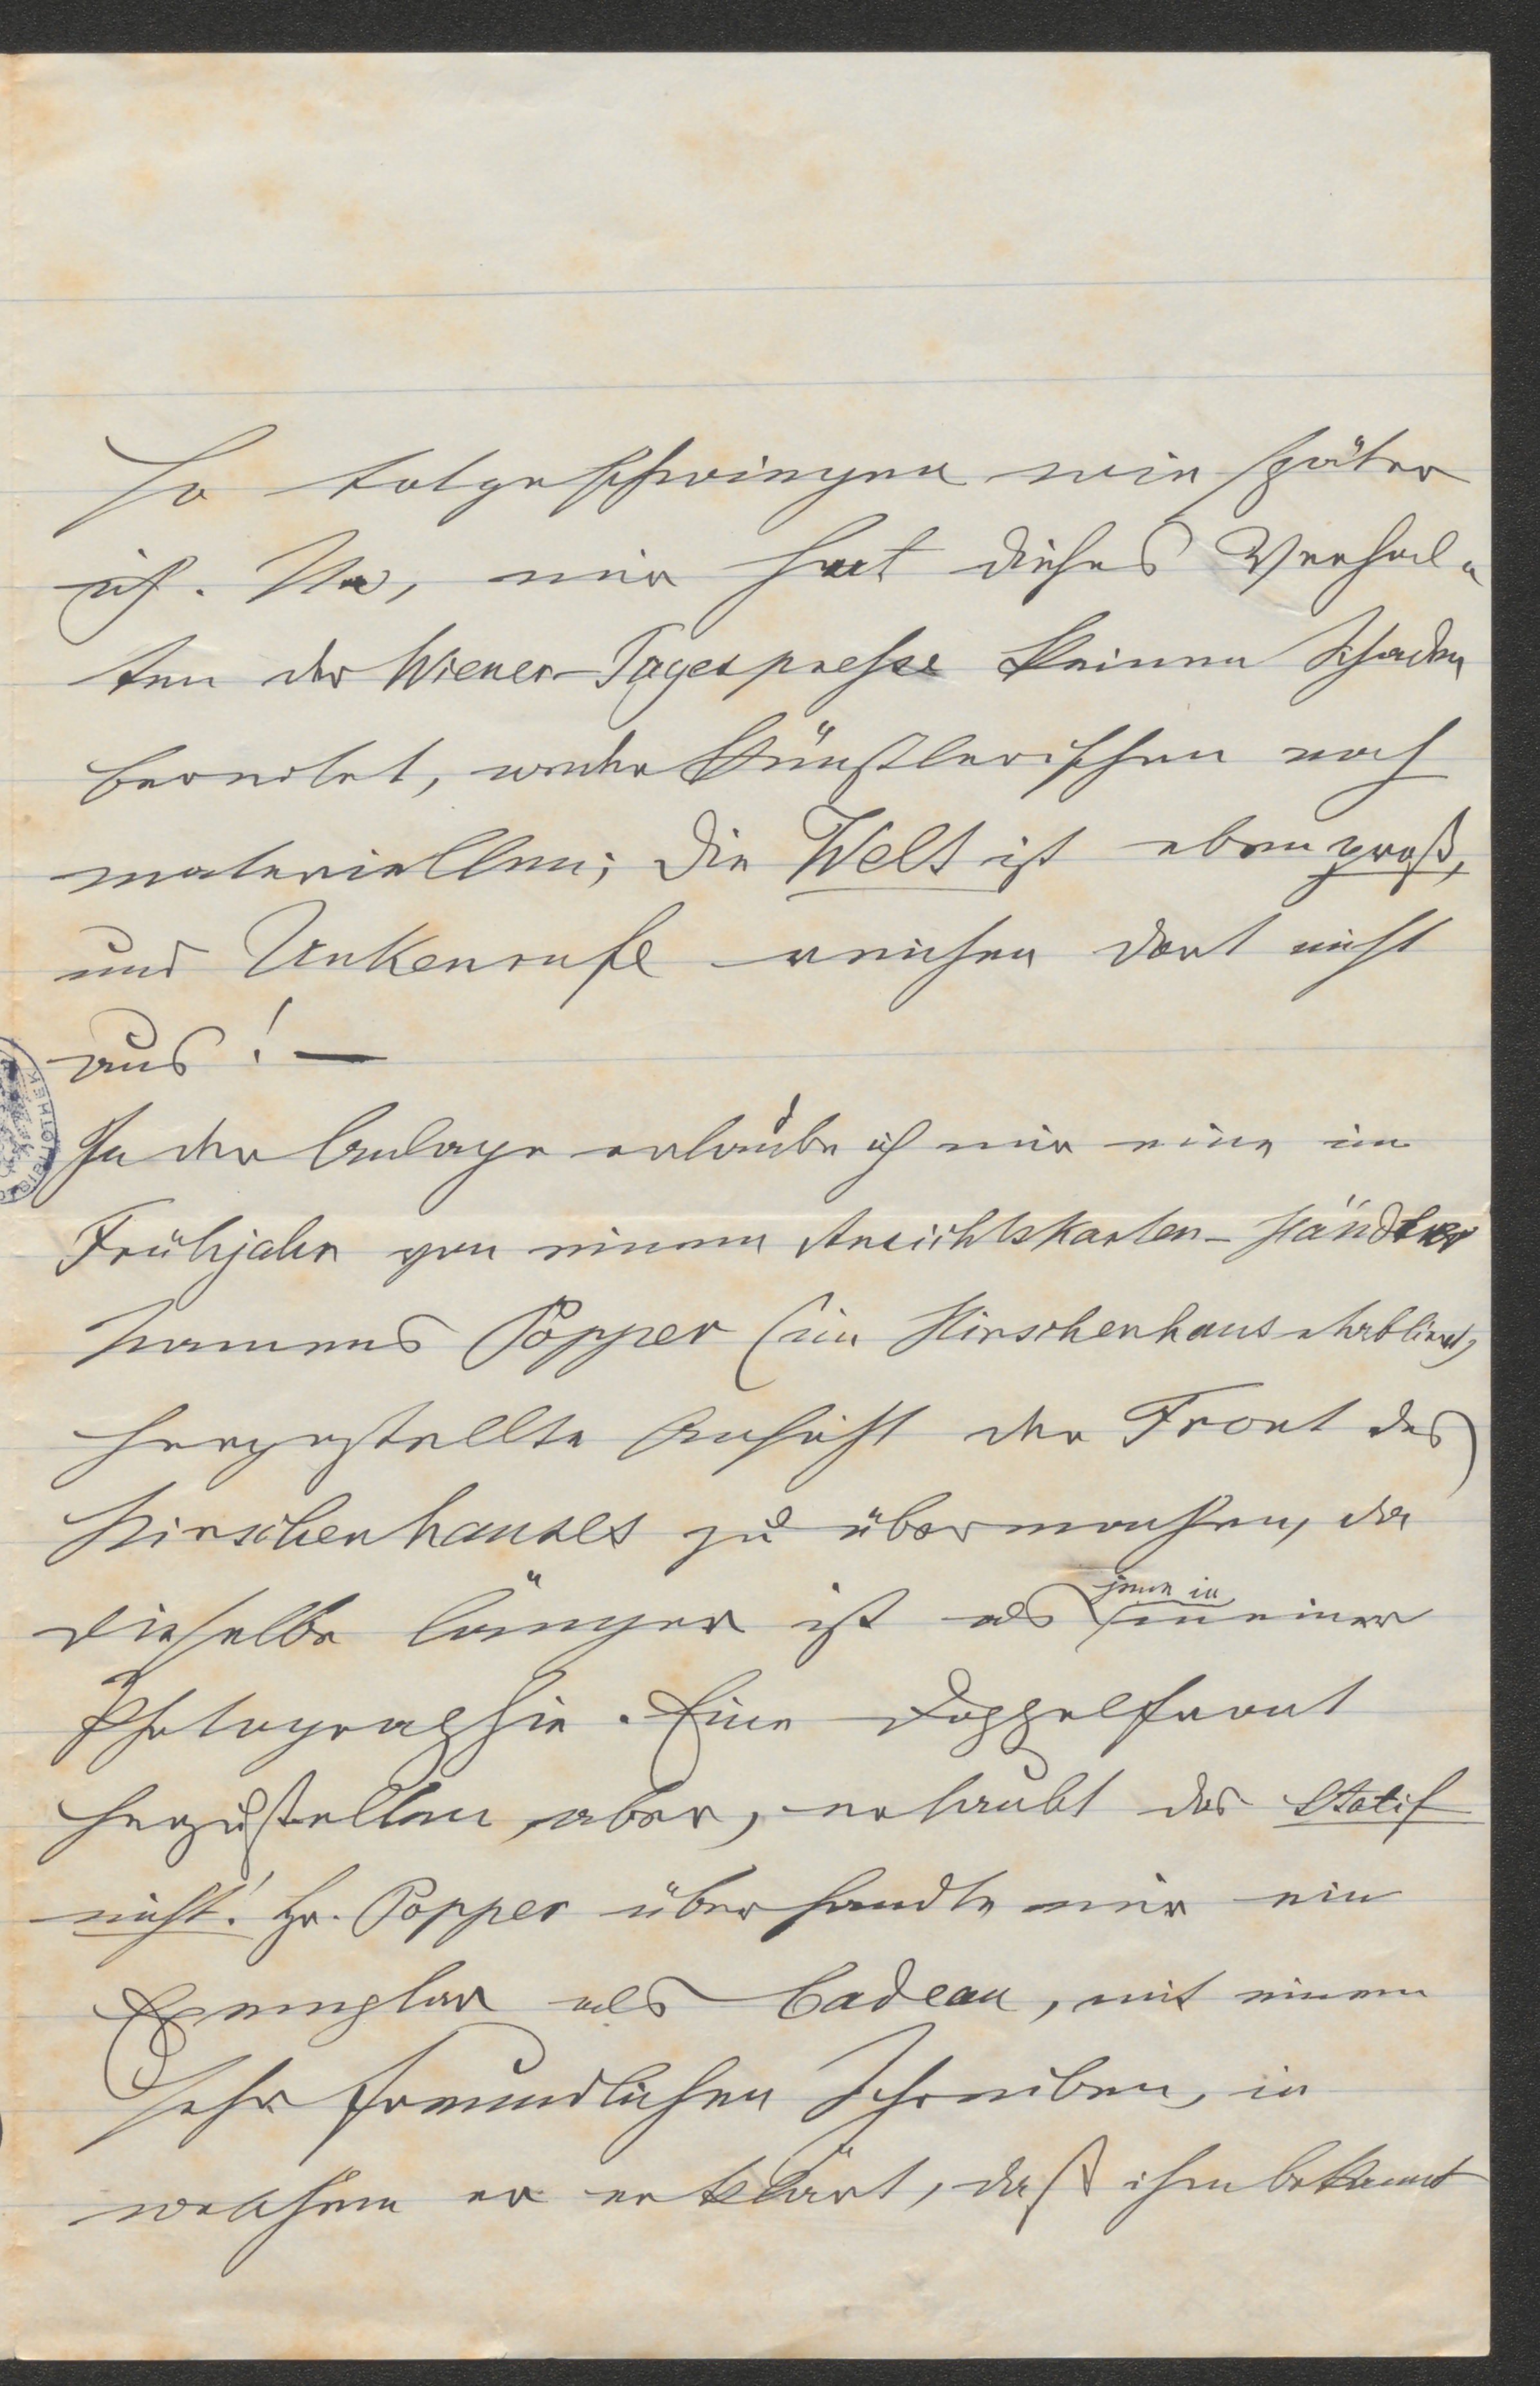 so totgeschwiegen wie später
ich. Na, mir hat dieses Verhal-
ten der Wiener-Tagespresse keinen Schaden
bereitet, weder künstlerischen noch
materiellen; die Welt ist eben groß,
und Unkenrufe reichen dort nicht
aus! —
In der Anlage erlaube ich mir eine im
Frühjahr von einem Ansichtskarten-Händler
namens Popper (im Hirschenhaus etabliert)
hergestellte Ansicht der Front des
Hirschenhauses zu übermachen, da
dieselbe länger ist als jene in meiner
Photographie. Eine Doppelfront
herzustellen aber, erlaubt das Stativ
nicht! Hr. Popper übersandte mir ein
Exemplar als Cadeau, mit einem
sehr freundlichen Schreiben, in
welchem er erklärt, daß ihm bekannt